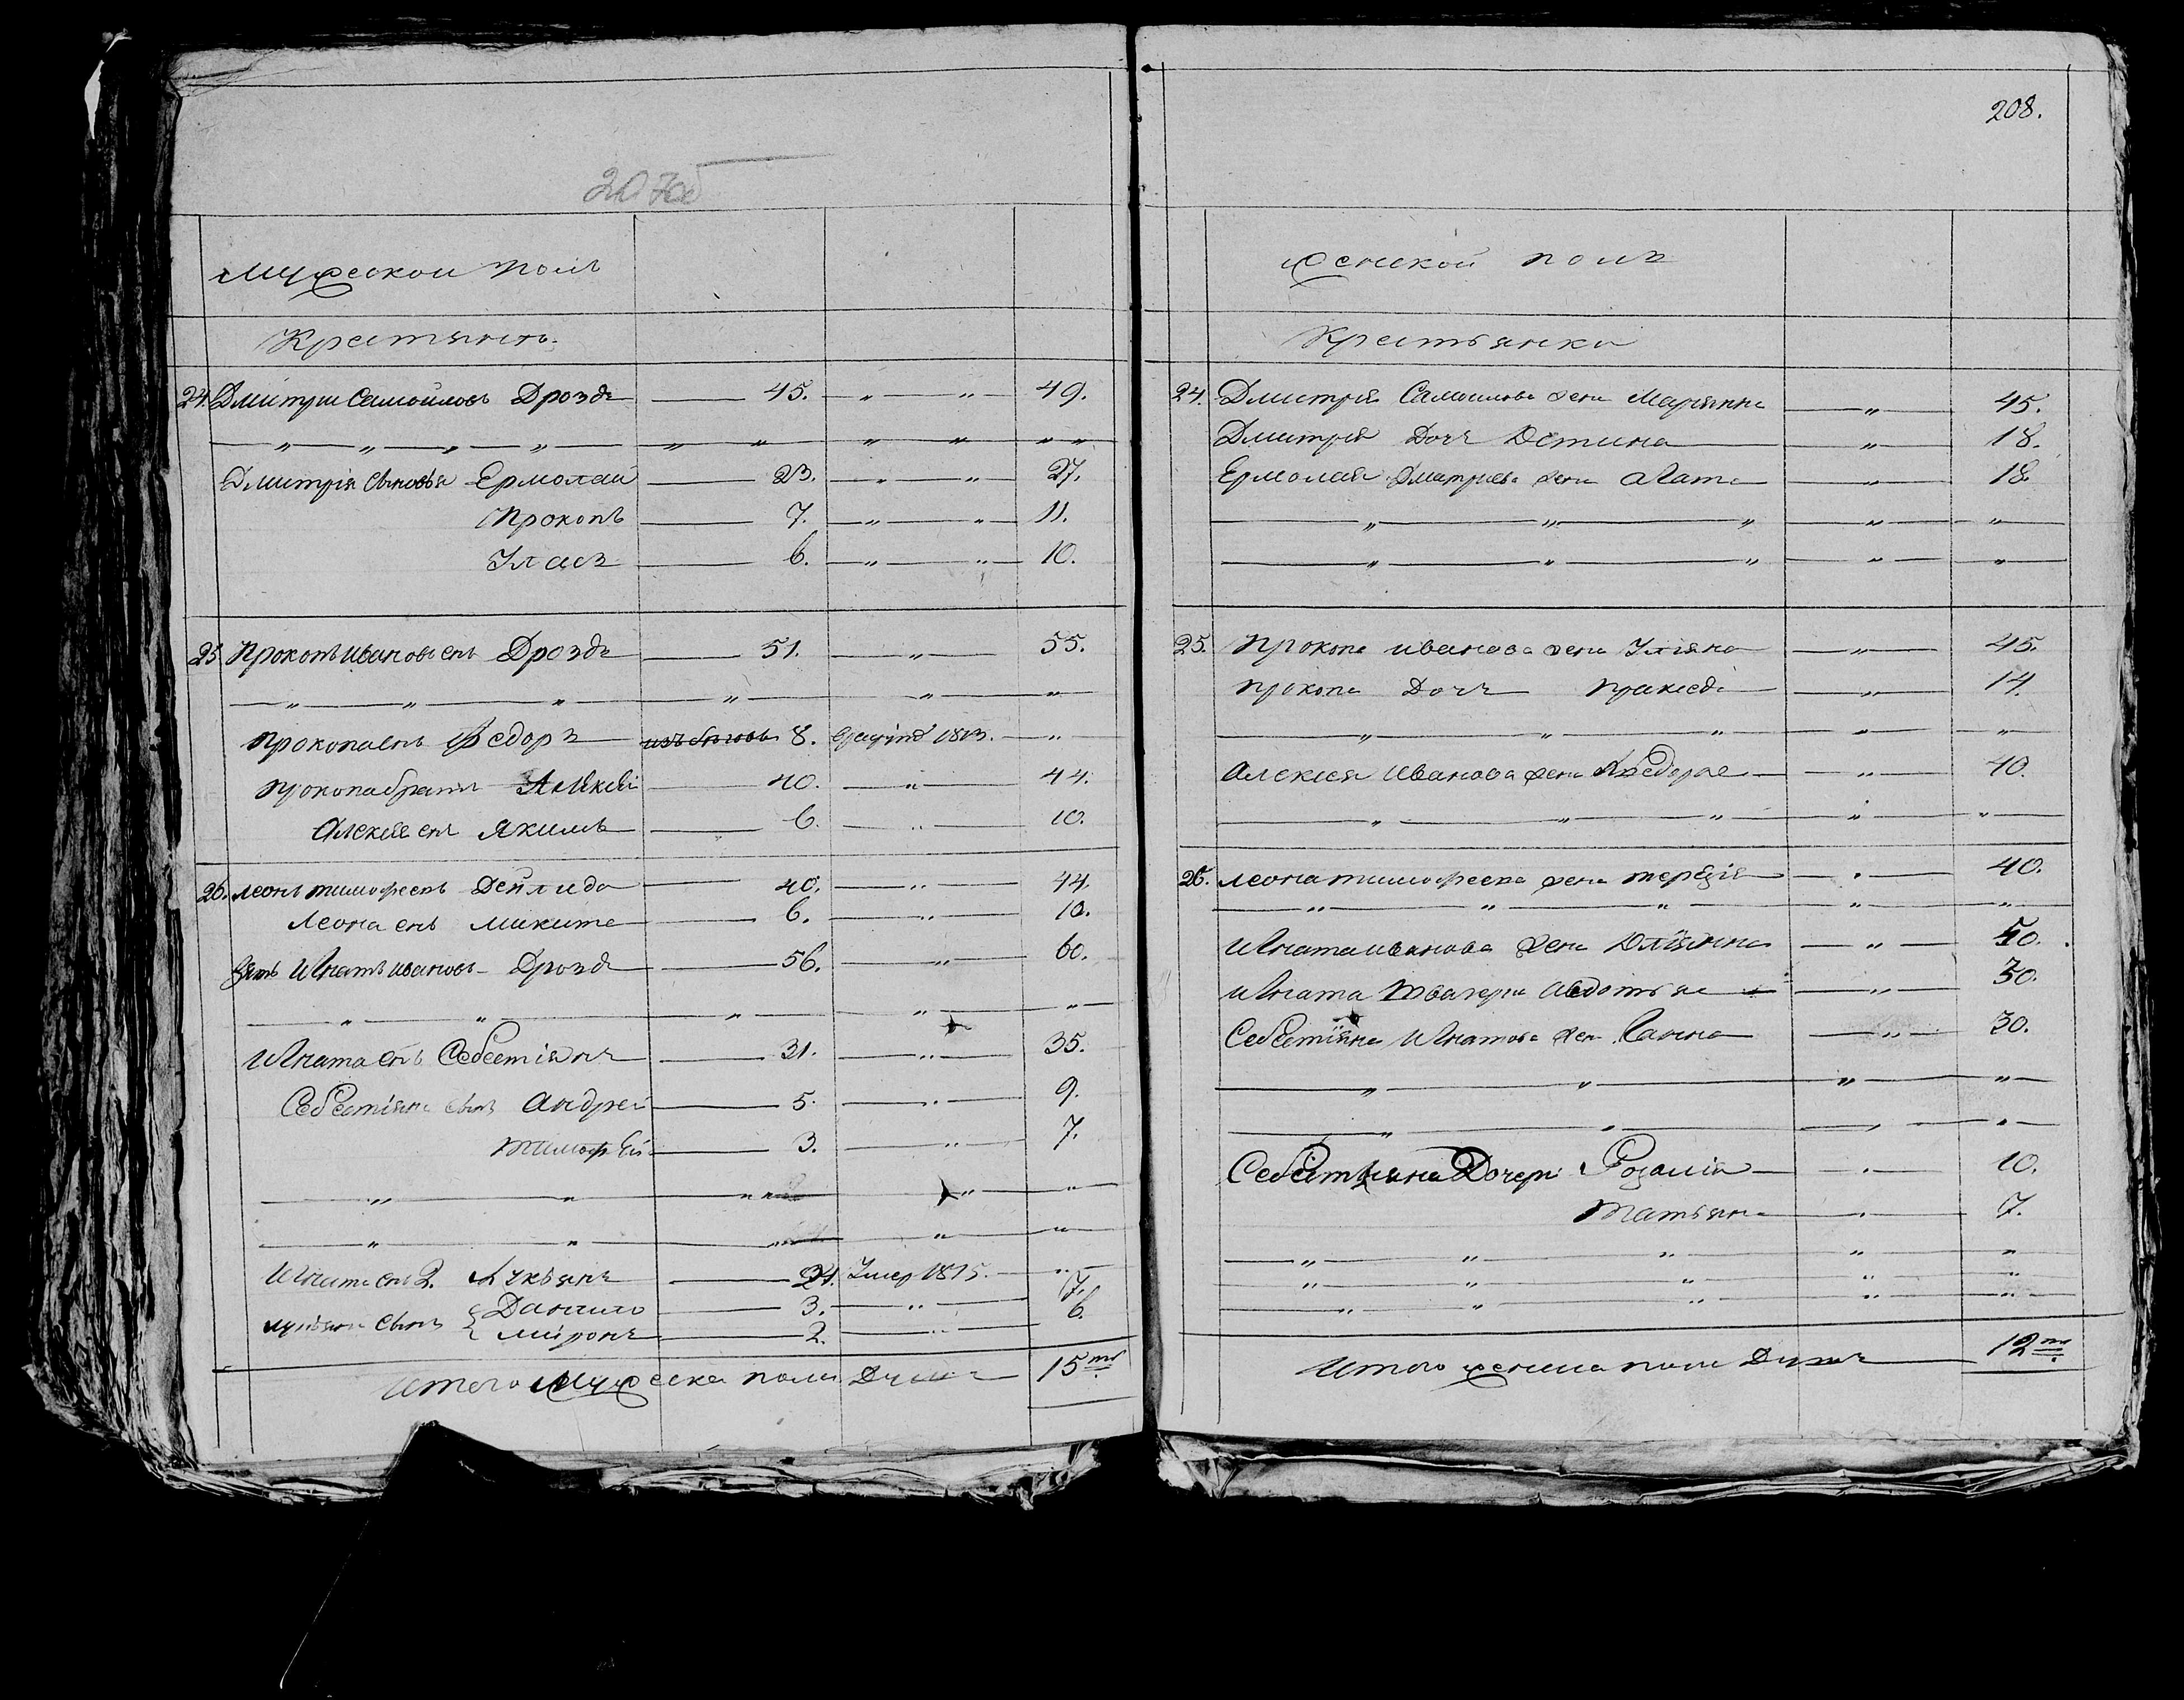 207об
Мужескои полъ
Крестьянъ.
24. Дмитри Самойловъ Дроздъ 45. „ „ 49.
„ „ „ „ „ „ „ „ „ „
Дмитрія сыновья Ермолай 23. „ „ 27.
Прокопъ 7. „ „ 11.
Уласъ 6. „ „ 10.
25. Прокопъ Ивановъ снъ Дроздъ 51. „ 55.
„ „ „ „ „ „
Прокопа снъ Федоръ 8. 1813. „
Прокопа братъ Алексѣй 40. „ 44.
Алексея снъ Якимъ 6. „ 10.
26. Леонъ Тимофеевъ 40. „ 44.
Леона снъ Микита 6. „ 10.
зять Игнатъ Ивановъ Дроздъ 56. „ 60.
„ „ „ „ „
Игната снъ Себестіянъ 31. „ 35.
Себестіяна сынъ Андрей 5. „ 9.
Тимофей 3. „ 7.
„ „ „ „ „ „
„ „ „ „ „
Игната снъ 2. Лукьянъ 21. Умер 1815. „
Лукіяна сынъ Данило 3. „ 7.
Миронъ 2. „ 6.
Итого мужеска пола Душъ 15ть
208.
Женской полъ
Крестьянки
24. Дмитрія Самоилова жена Марьянна „ 45.
Дмитрія Дочъ Юстина „ 18.
Ермолая Дмитріева жена Агата „ 18.
„ „ „ „ „
„ „ „ „ „
25. Прокопа Иванова жена Уліяна „ 45.
Прокопа Дочъ Праксeда „ 14.
„ „ „ „ „
Алексея Иванова жена Федора „ 40.
„ „ „ „ „
26. Леона Тимофеева жена Терезія „ 40.
„ „ „ „ „
Игната Иванова жена Юліянна „ 50.
Игната Авдотья „ 30.
Себестіяна Игнатова жена Ганна „ 30.
„ „ „ „
„ „ „ „
Себестьяна Дочери Розалія „ 10.
Татьяна „ 7.
„ „ „ „ „
„ „ „ „ „
„ „ „ „ „
Итого женска пола Душъ 12ть